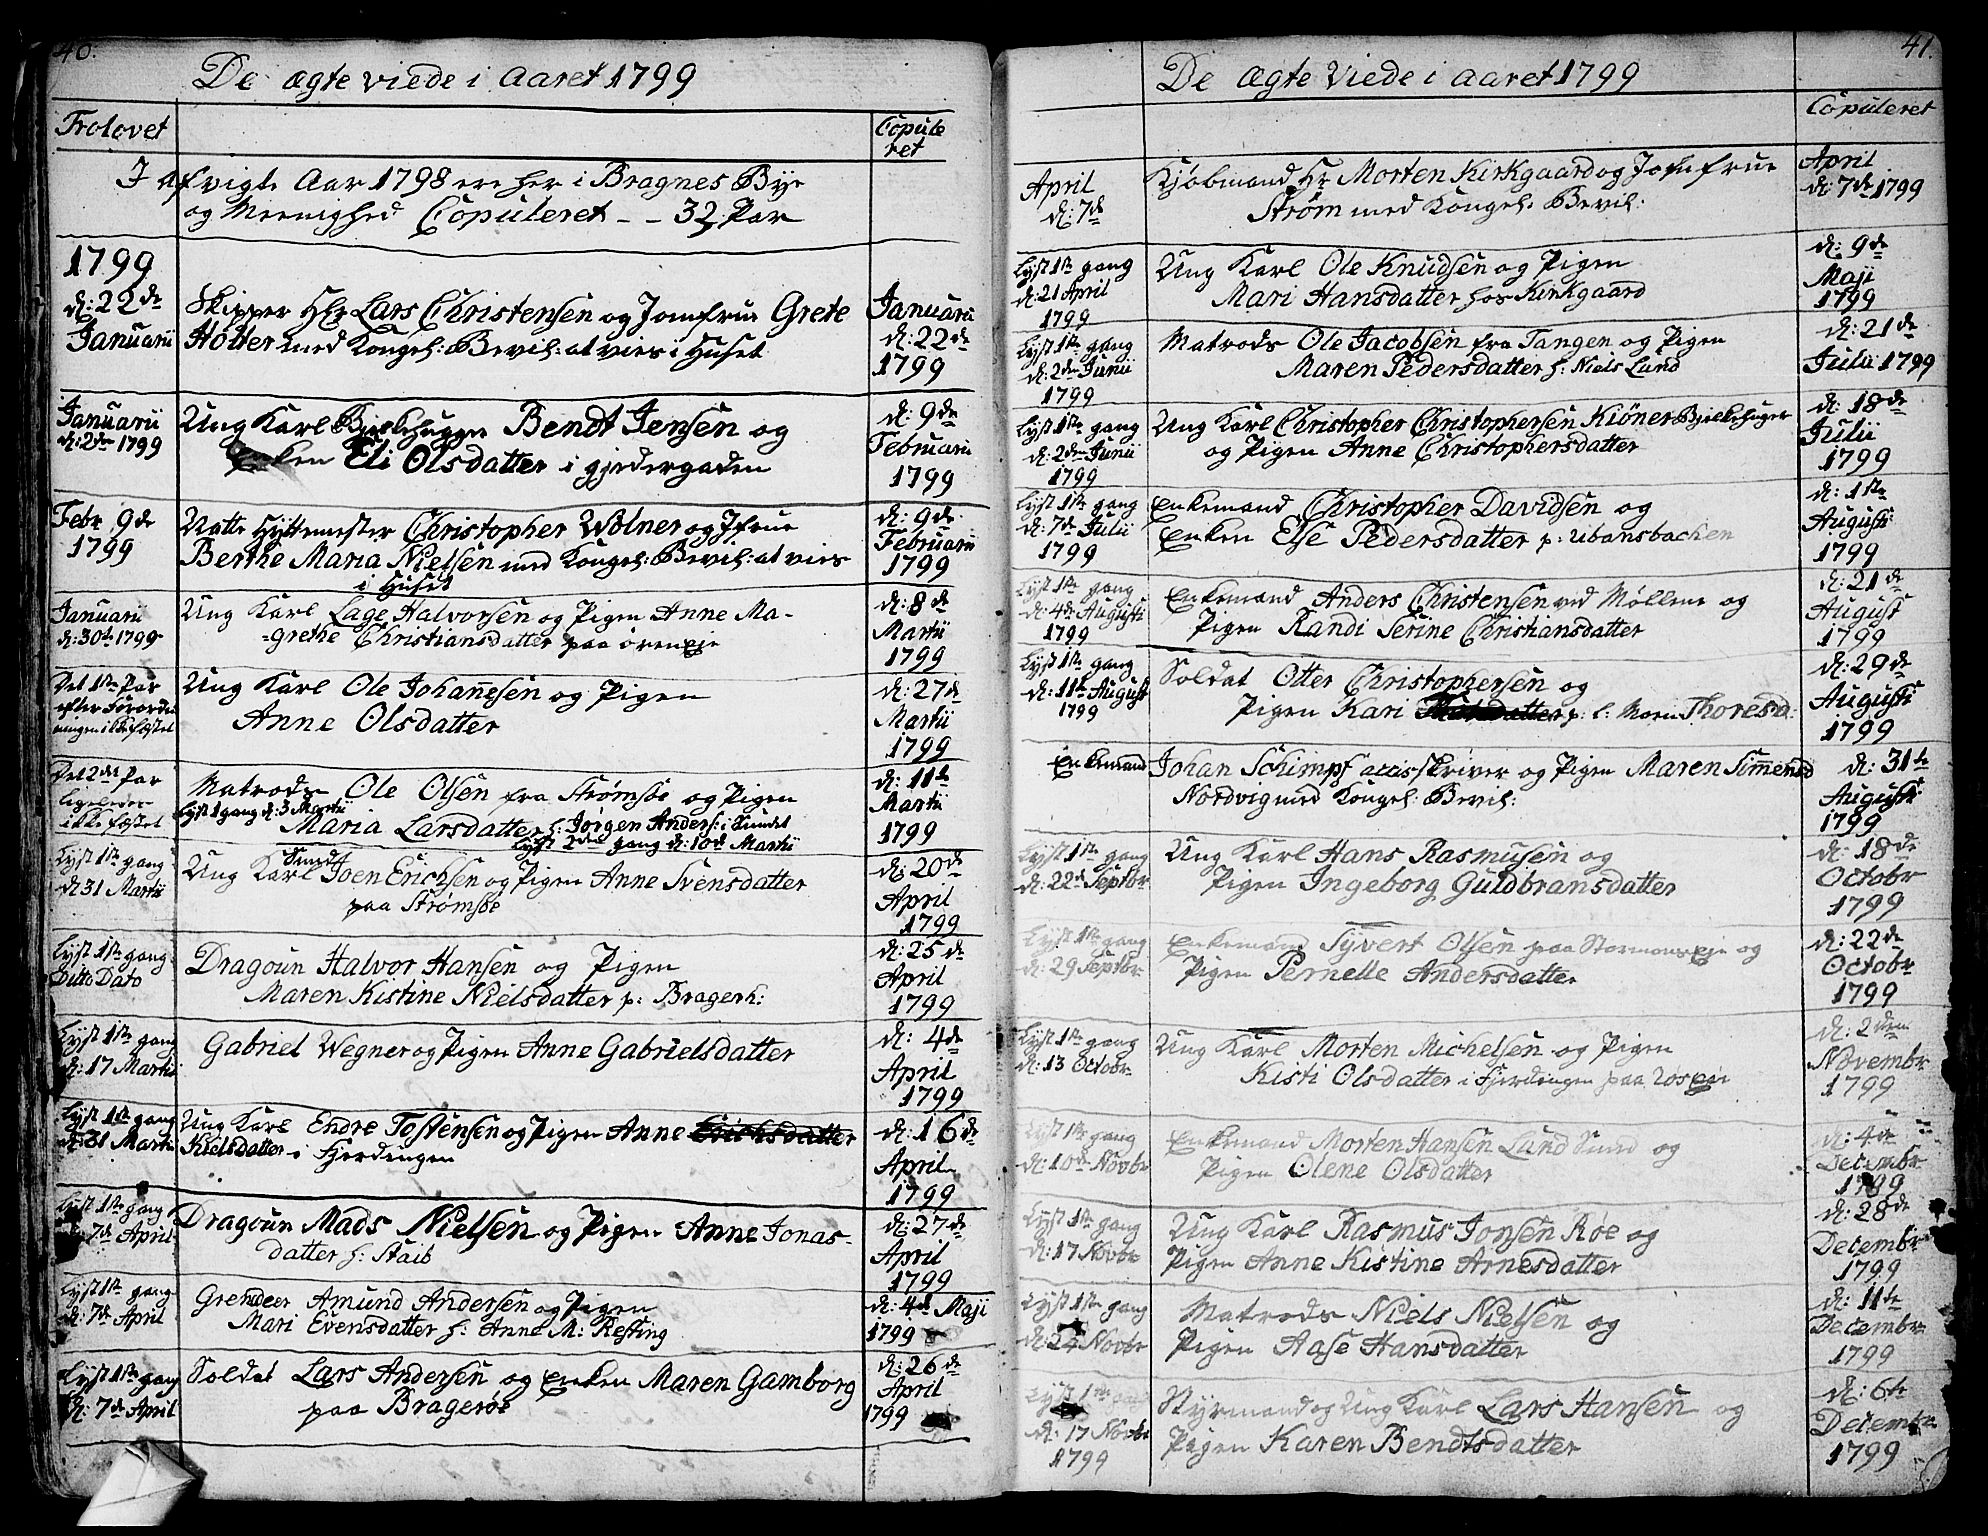 40.
De ægte viede i Aaret 1799
Trolovet
Copule
ret
I afvigte Aar 1798 ere her i Bragnes Bye
og Meenighed Copuleret - - 32 Par
1799
d: 22de
Januarii
Skipper Hr Lars Christensen og Jomfrue Grete
Hotter med Kongel: Bevil: at vies i Huset
Januarii
d: 22de
1799
Januarii
d: 2den 1799
Ung Karl Bødkersvend Bendt Jensen og
Enken Eli Olsdatter i gjedergaden
d: 9de
Februarii
1799
Febr 9de
1799
Natte Hyttemester Christopher Wolner og Jfrue
Berthe Maria Nielsen med Kongel: Bevil: at vies
i Huset
d: 9de
Februarii
1799
Januarii
d: 30te 1799
Ung Karl Lage Halvorsen og Pigen Anne Ma-
-grethe Christiansdatter paa ørenEje
d: 8de
Martii
1799
Det 1ste Par
efter Forord-
ningen ikke fæstet
Ung Karl Ole Johannesen og Pigen
Anne Olsdatter
d: 27de
Martii
1799
Det 2det Par
ligeledes
ikke fæstet
Matrods Ole Olsen fra Strømsøe og Pigen
Lyst 1 gang d: 3 Martii
Maria Larsdatter h: Jørgen Anders: i Sundet
Lyst 2den gang d: 10de Martii
d: 11te
Martii
1799
Lyst 1ste gang
d: 31 Martii
Ung Karl Smed Joen Erichsen og Pigen Anne Svensdatter
paa Strømsøe
d: 20de
April
1799
Lyst 1ste gang
Ditto Dato
Dragoun Halvor Hansen og Pigen
Maren Kistine Nielsdatter p: Bragerh:
d: 25de
April
1799
Lyst 1ste gang
d: 17 Martii
Gabriel Wegner og Pigen Anne Gabrielsdatter
d: 4de
April
1799
Lyst 1ste gang
d: 31 Martii
Ung Karl Endre Tostensen og Pigen Anne Erichsdatter
Kielsdatter i Fjerdingen
d: 16de
April
1799
Lyst 1ste gang
7de April
Dragoun Mads Nielsen og Pigen Anne Jonas-
datter h: Staib
d: 27de
April
1799
Lyst 1ste gang
d: 7de April
Grendeer Amund Andersen og Pigen
Mari Evensdatter h: Anne M: Resting
d: 4de Maji
1799
Lyst 1ste gang
d: 7de April
Soldat Lars Andersen og Enken Maren Gamborg
paa Bragerøe
d: 26de
April
1799
41.
De ægte Viede i Aaret 1799
Copuleret
April
d: 7de
Kjøbmand Hr Morten Kirkgaard og Jomfrue
Strøm med Kongel: Bevil:
April
d: 7de 1799
Lyst 1ste gang
d: 21 April
1799
Ung Karl Ole Knudsen og Pigen
Mari Hansdatter hos Kirkgaard
d: 9de
Maji
1799
Lyst 1ste gang
d: 2den Junii
1799
Matrods Ole Jacobsen fra Tangen og Pigen
Maren Pedersdatter h: Niels Lund
d: 21de
Julii 1799
Lyst 1ste gang
d: 2den Junii
1799
Ung Karl Christopher Christophersen Kiøner Bielkehuger
og Pigen Anne Christophersdatter
d: 18de
Julii
1799
Lyst 1ste gang
d: 7de Julii
1799
Enkemand Christopher Davidsen og
Enken Else Pedersdatter p: Ubansbacken
d: 1ste
Augusti
1799
Lyst 1ste gang
d: 4de Augusti
1799
Enkemand Anders Christensen ved Møllene og
Pigen Randi Serine Christiansdatter
d: 21de
August
1799
Lyst 1ste gang
d: 11te August
1799
Soldat Otter Christophersen og
Pigen Kari p: l: Moen Thoresd:
d: 29de
Augusti
1799
Enkemand Johan Schimpf accisskriver og Pigen Maren Simensd
Nordvig med Kongel: Bevil:
d: 31te
Augusti
1799
Lyst 1ste gang
d: 22de Septbr
Ung Karl Hans Rasmusen og
Pigen Ingeborg Guldbramsdatter
d: 18de
Octobr
1799
Lyst 1ste gang
d: 29 Septbr
Enkemand Syvert Olsen paa StormonsEje og
Pigen Pernelle Andersdatter
d: 22de
Octobr
1799
Lyst 1ste gang
d: 13 Octobr
Ung Karl Morten Michelsen og Pigen
Kisti Olsdatter i Fjerdingen paa
d: 2den
Novembr
1799
Lyst 1ste gang
d: 10de Novbr
Enkemand Morten Hansen Lund Smed og
Pigen Olene Olsdatter
d: 4de
Decembr
1799
Lyst 1ste gang
d: 17 Novbr
Ung Karl Rasmus Jonsen Røe og
Pigen Anne Kistine Arnesdatter
d: 28de
Decembr
1799
Lyst 1ste gang
d: 24 Novbr
Matrods Niels Nielsen og
Pigen Aase Hansdatter
d: 11te
Decembr
1799
Lyst 1ste gang
d: 17 Novbr
1799
Styrmand og Ung Karl Lars Hansen og
Pigen Karen Bendtsdatter
d: 6te
Decembr
1799